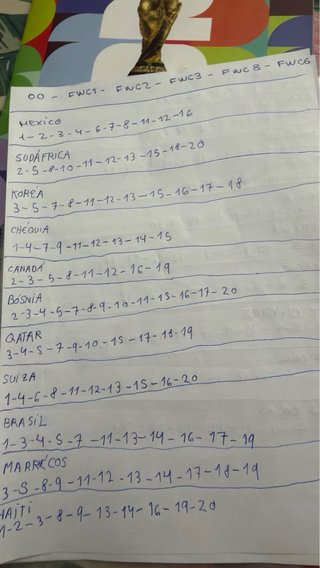 00 - FWC1 - FWC2 - FWC3 - FWC5 - FWC6
MEXICO
1-2-3-4-6-7-8-11-12-16
SUDÁFRICA
2-5-8-10-11-12-13-15-18-20
KOREA
3-5-7-8-11-12-13-15-16-17-18
CHÉQUIA
1-4-7-9-11-12-13-14-15
CANADÁ
2-3-5-8-11-12-16-19
BÓSNIA
2-3-4-5-7-8-9-10-11-15-16-17-20
QATAR
3-4-5-7-9-10-15-17-18-19
SUÍZA
1-4-6-8-11-12-13-15-16-20
BRASIL
1-3-4-5-7-11-13-14-16-17-19
MARRÉCOS
3-5-8-9-11-12-13-14-17-18-19
HAITÍ
1-2-3-8-9-13-14-16-19-20